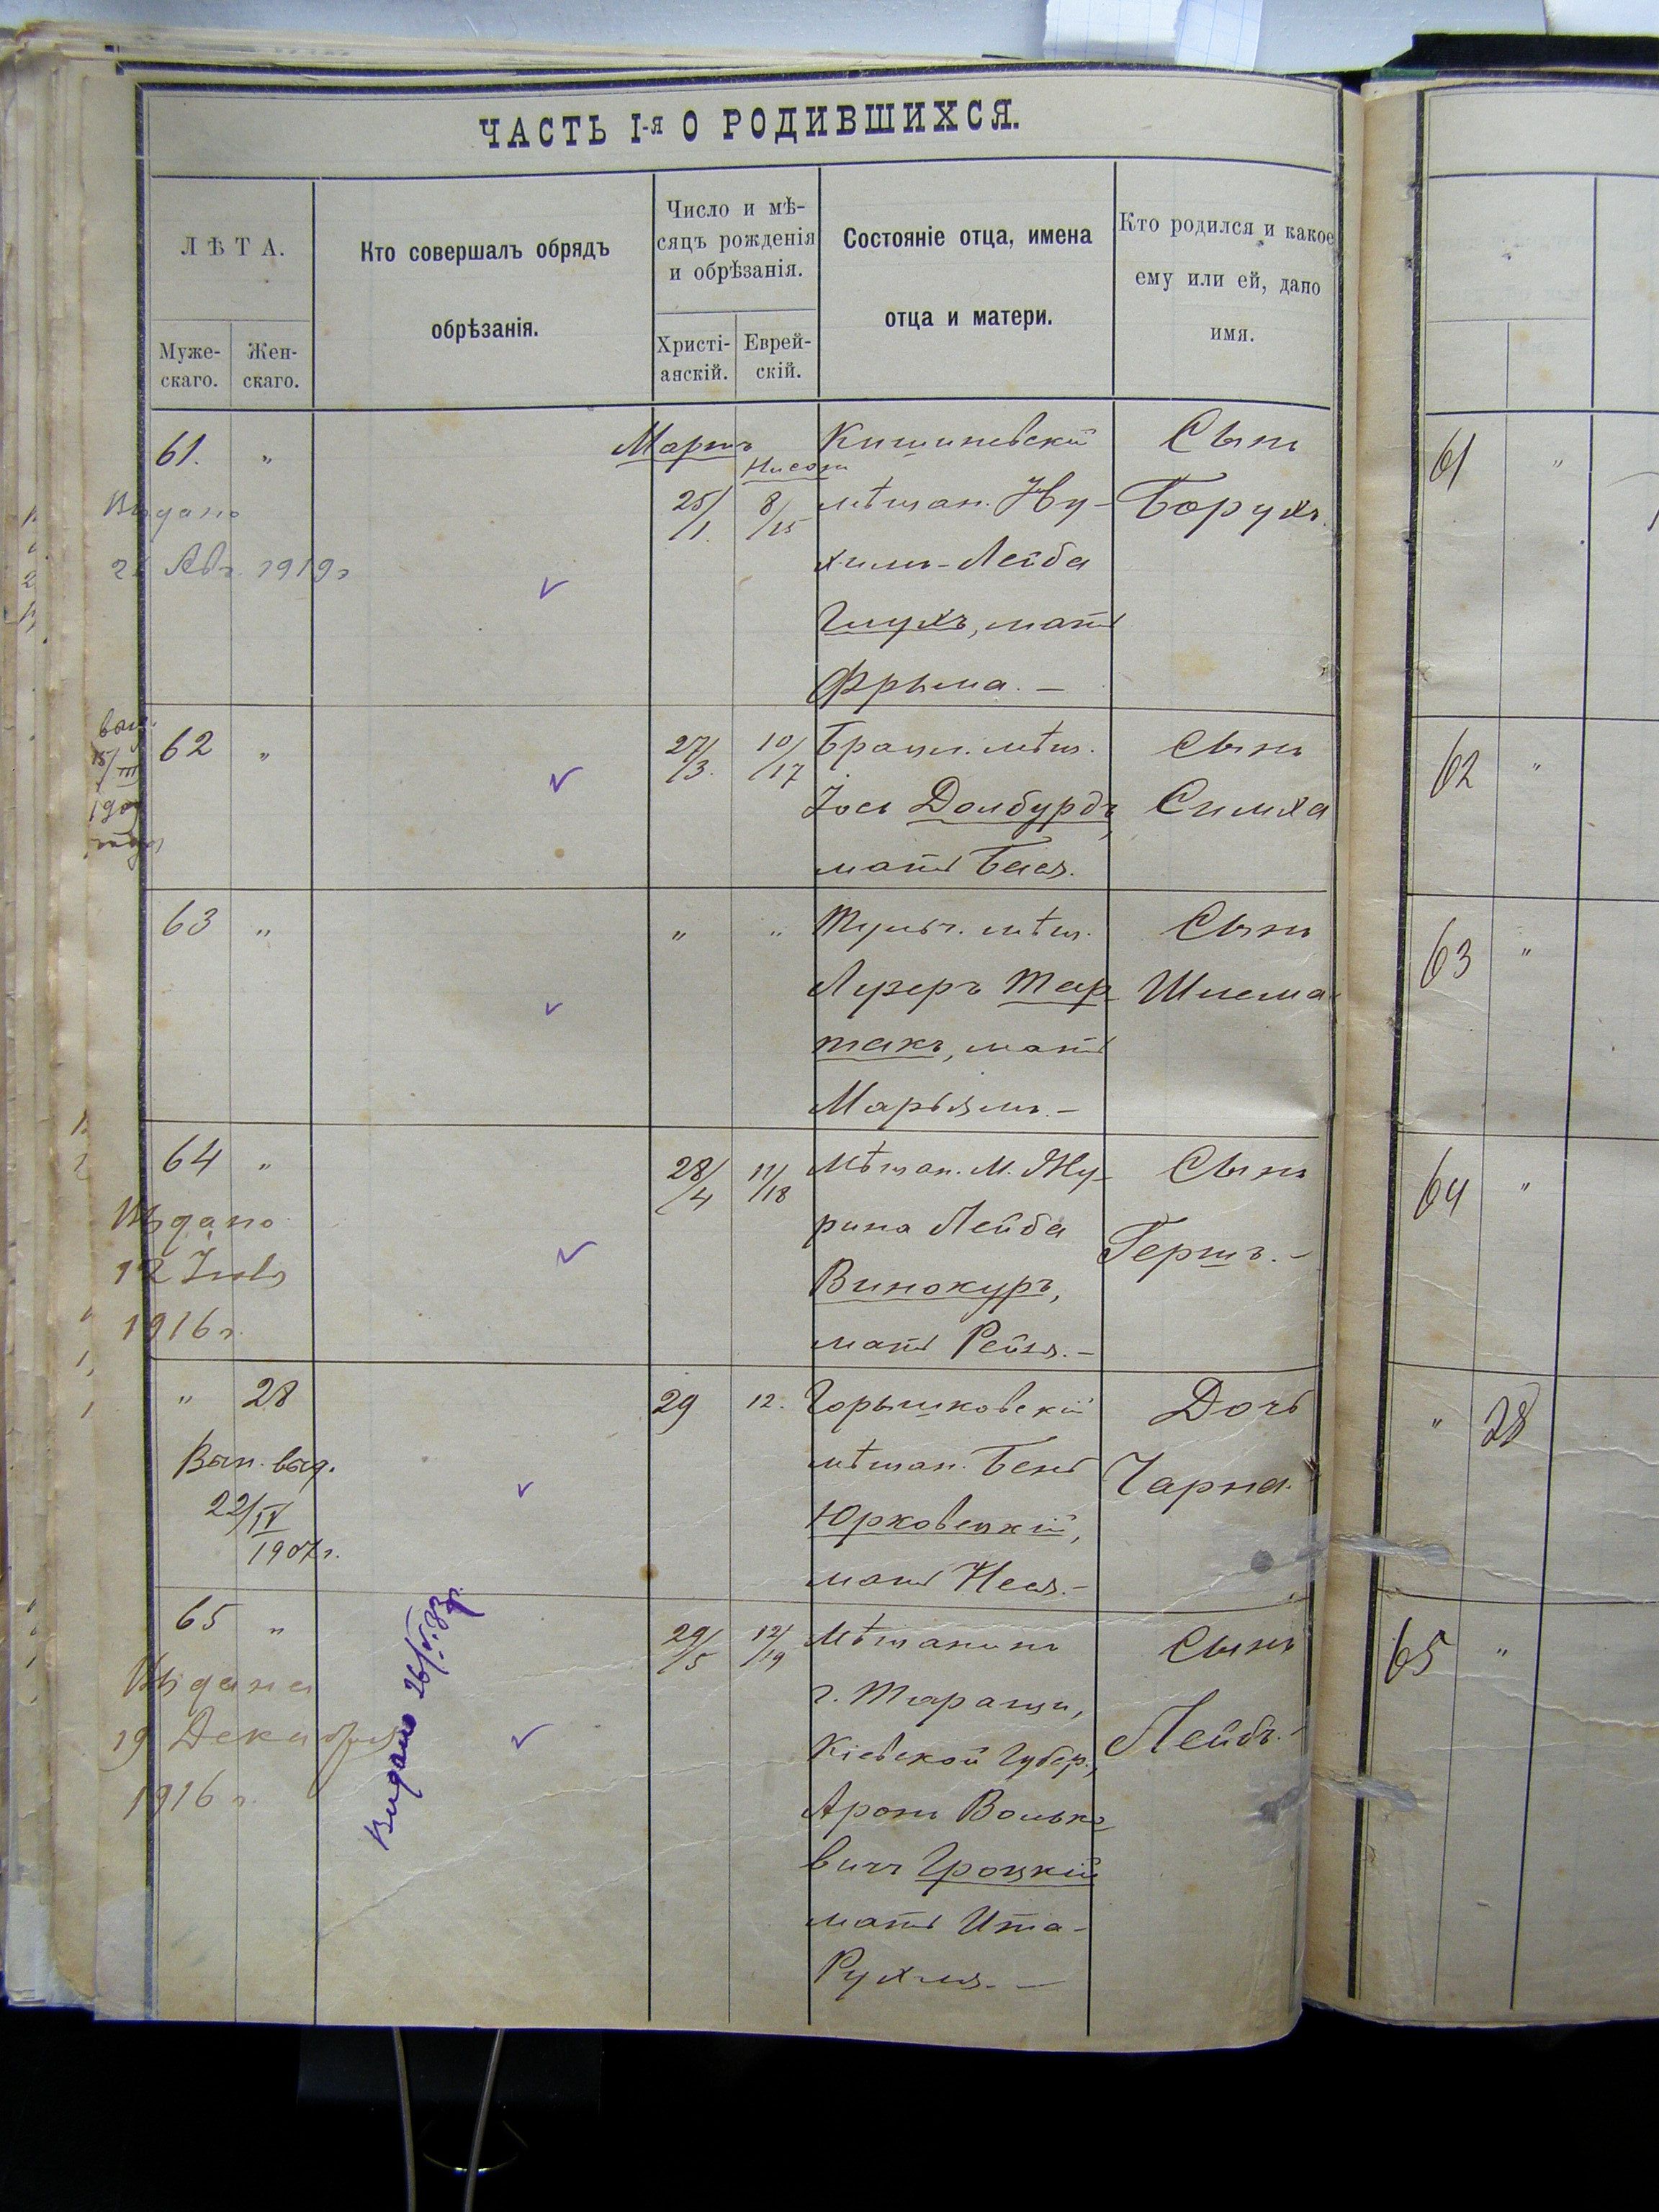 ЧАСТЬ I-я О РОДИВШИХСЯ.
ЛѢТА.
Муже-
скаго.
Жен-
скаго.
Кто совершалъ обрядъ
обрѣзанія.
Число и мѣ-
сяцъ рожденія
и обрѣзанія.
Христі-
анскій.
Еврей-
скій.
Состояніе отца, имена
отца и матери.
Кто родился и какое
ему или ей, дано
имя.
61. "
Мартъ
Нисонъ
25/1. 8/15
Кишиневскій
мѣщан. Ну-
химъ-Лейба
Глухъ, мать
Фрыма. —
Сынъ
Борухъ.
Выдано
Авг. 1919г
62 "
27/3. 10/17
Брацл. мѣщ.
Іось Долбурдъ,
мать Бася.
Сынъ
Симха
выд.
15/III
190
63 "
" "
Тульч. мѣщ.
Лузеръ Тар-
такъ, мать
Марьямъ. —
Сынъ
Шлема
64 "
28/4 11/18
Мѣщан. м. Жу-
рина Лейба
Винокуръ,
мать Рейзя. —
Сынъ
Гершъ. —
Выдано
12 Іюля
1916 г.
" 28
29 12.
Горышковскій
мѣщан. Бень
Юрковецкій,
мать Неся. —
Дочь
Чарна.
Вып. выд.
22/IV
1907 г.
65 "
29/5 12/19
Мѣщанинъ
г. Таращи,
Кіевской Губер.,
Аронъ Волько-
вичъ Троцкій
мать Ита-
Рухля. —
Сынъ
Лейбъ. —
Выдана
19 Декабря
1916 г.
Видано 26/V.33р.
61 "
62 "
63 "
64 "
" 28
65 "